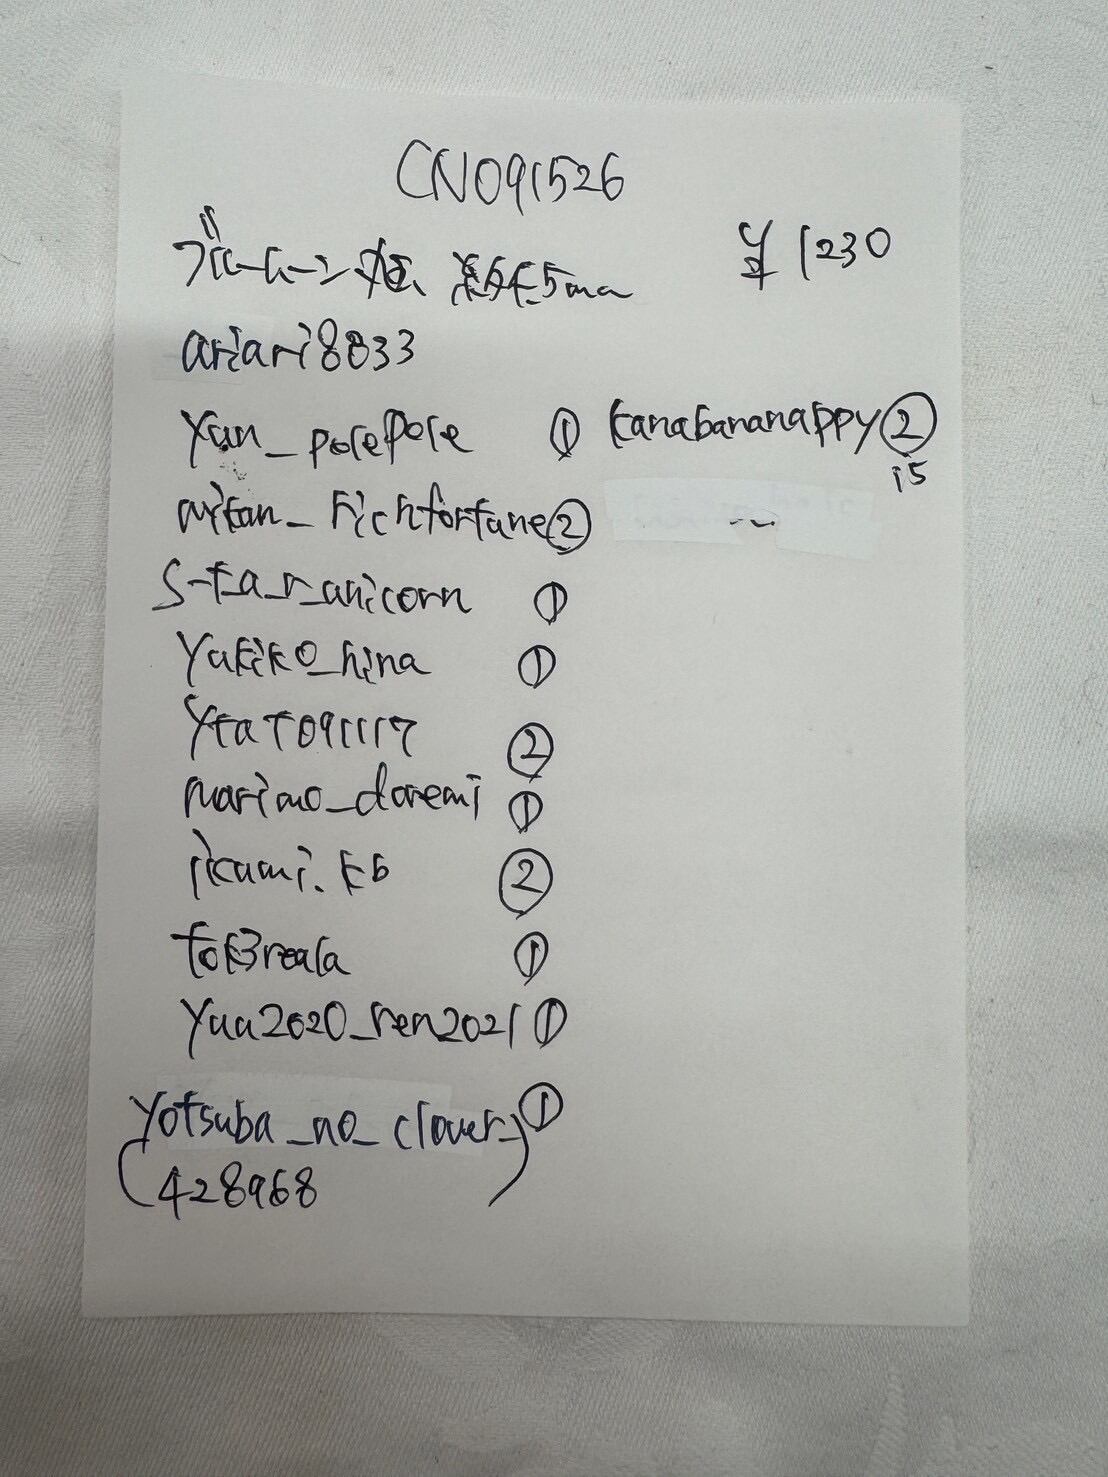 CN091526
ブルームーン 5mm ¥1230
ariari8833
Yun_polepole ① kanabananappy②
15
mitan_richfortune②
s-ta_r_unicorn ①
Yukiko_hina ①
YtaT091117 ②
marimo_doremi ①
ikumi.kb ②
tok3reala ①
Yuu2020_ren2021 ①
Yotsuba_no_clover_ ①
(428968)